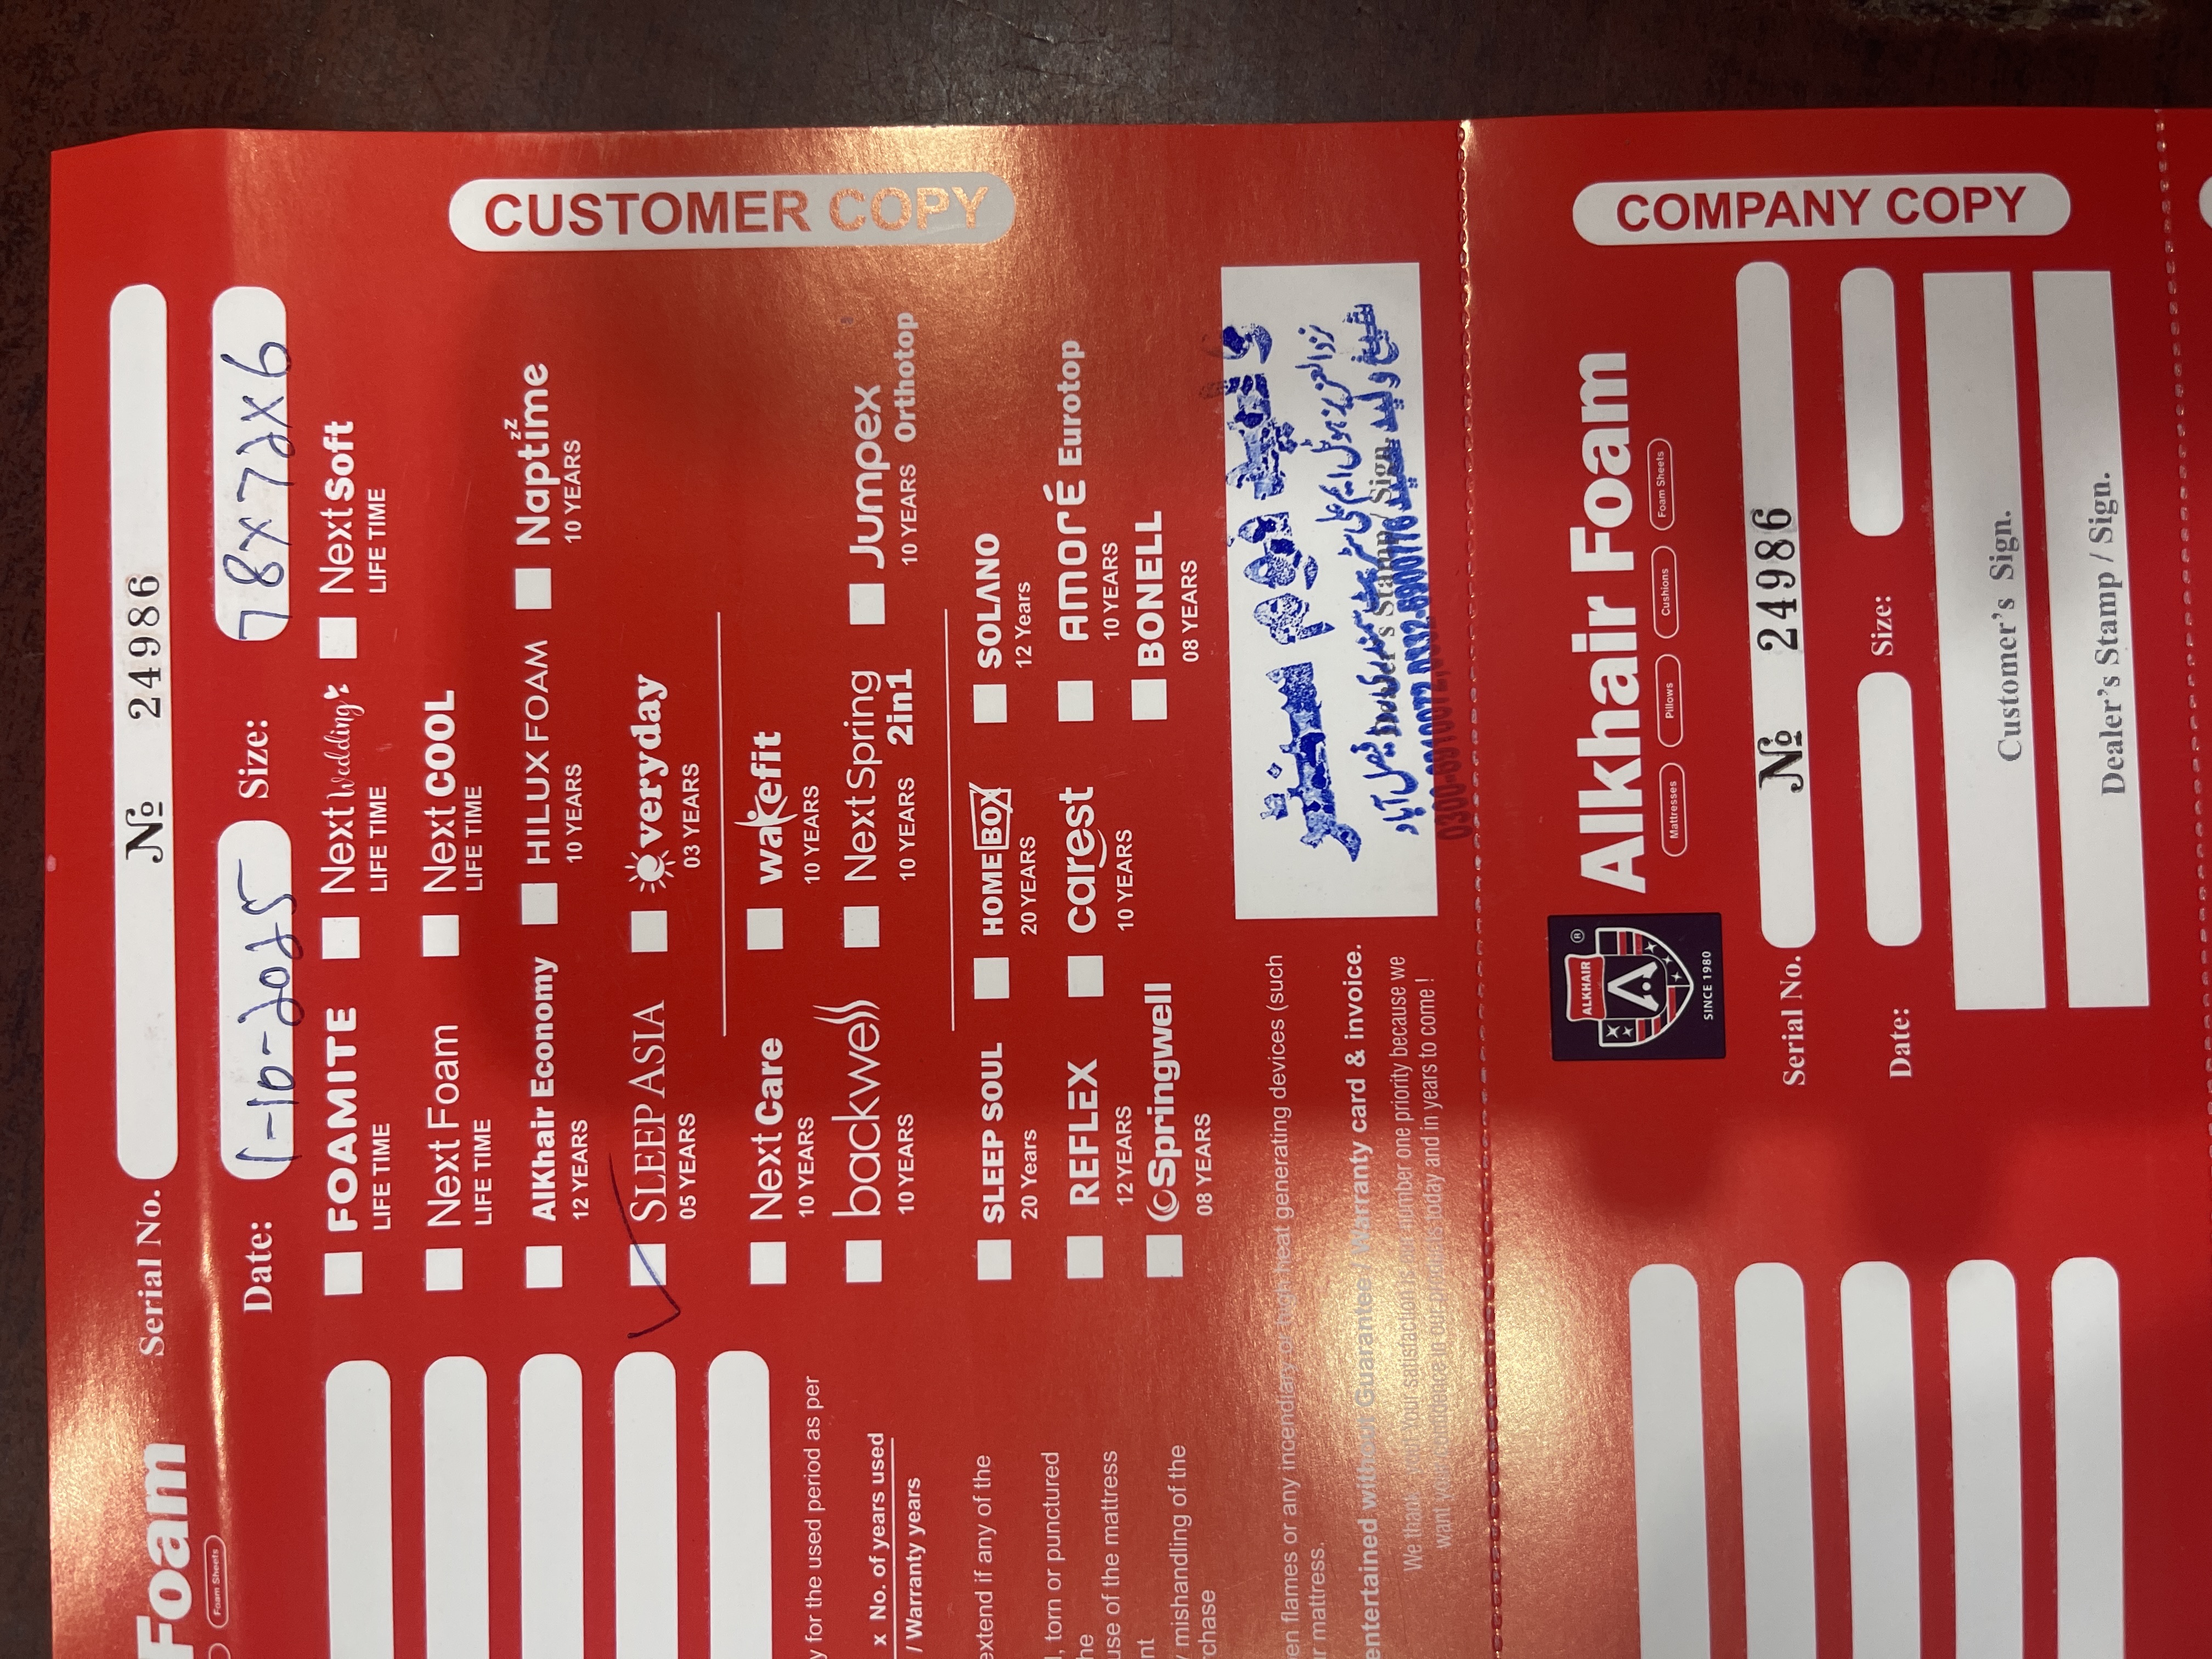 Foam
Foam Sheets
CUSTOMER COPY
Serial No. № 24986
Date: 1-10-2025 Size: 78x72x6
FOAMITE
LIFE TIME
Next Wedding
LIFE TIME
Next Soft
LIFE TIME
Next Foam
LIFE TIME
Next COOL
LIFE TIME
AlKhair Economy
12 YEARS
HILUX FOAM
10 YEARS
Naptime zz
10 YEARS
SLEEP ASIA
05 YEARS
everyday
03 YEARS
Next Care
10 YEARS
wakefit
10 YEARS
backwell
10 YEARS
Next Spring
10 YEARS 2in1
Jumpex
10 YEARS Orthotop
SLEEP SOUL
20 Years
HOME BOX
20 YEARS
SOLANO
12 Years
REFLEX
12 YEARS
carest
10 YEARS
AMORÉ Eurotop
10 YEARS
Springwell
08 YEARS
BONELL
08 YEARS
y for the used period as per
x No. of years used
/ Warranty years
extend if any of the
, torn or punctured
he
use of the mattress
nt
y mishandling of the
rchase
en flames or any incendiary or high heat generating devices (such
r mattress.
entertained without Guarantee / Warranty card & invoice.
We thank you! Your satisfaction is our number one priority because we
want your confidence in our products today and in years to come !
فوم سنٹر
فیصل آباد
شیخ ولید
Dealer's Stamp / Sign.
COMPANY COPY
ALKHAIR
®
SINCE 1980
Alkhair Foam
Mattresses Pillows Cushions Foam Sheets
Serial No. № 24986
Date: Size:
Customer's Sign.
Dealer's Stamp / Sign.